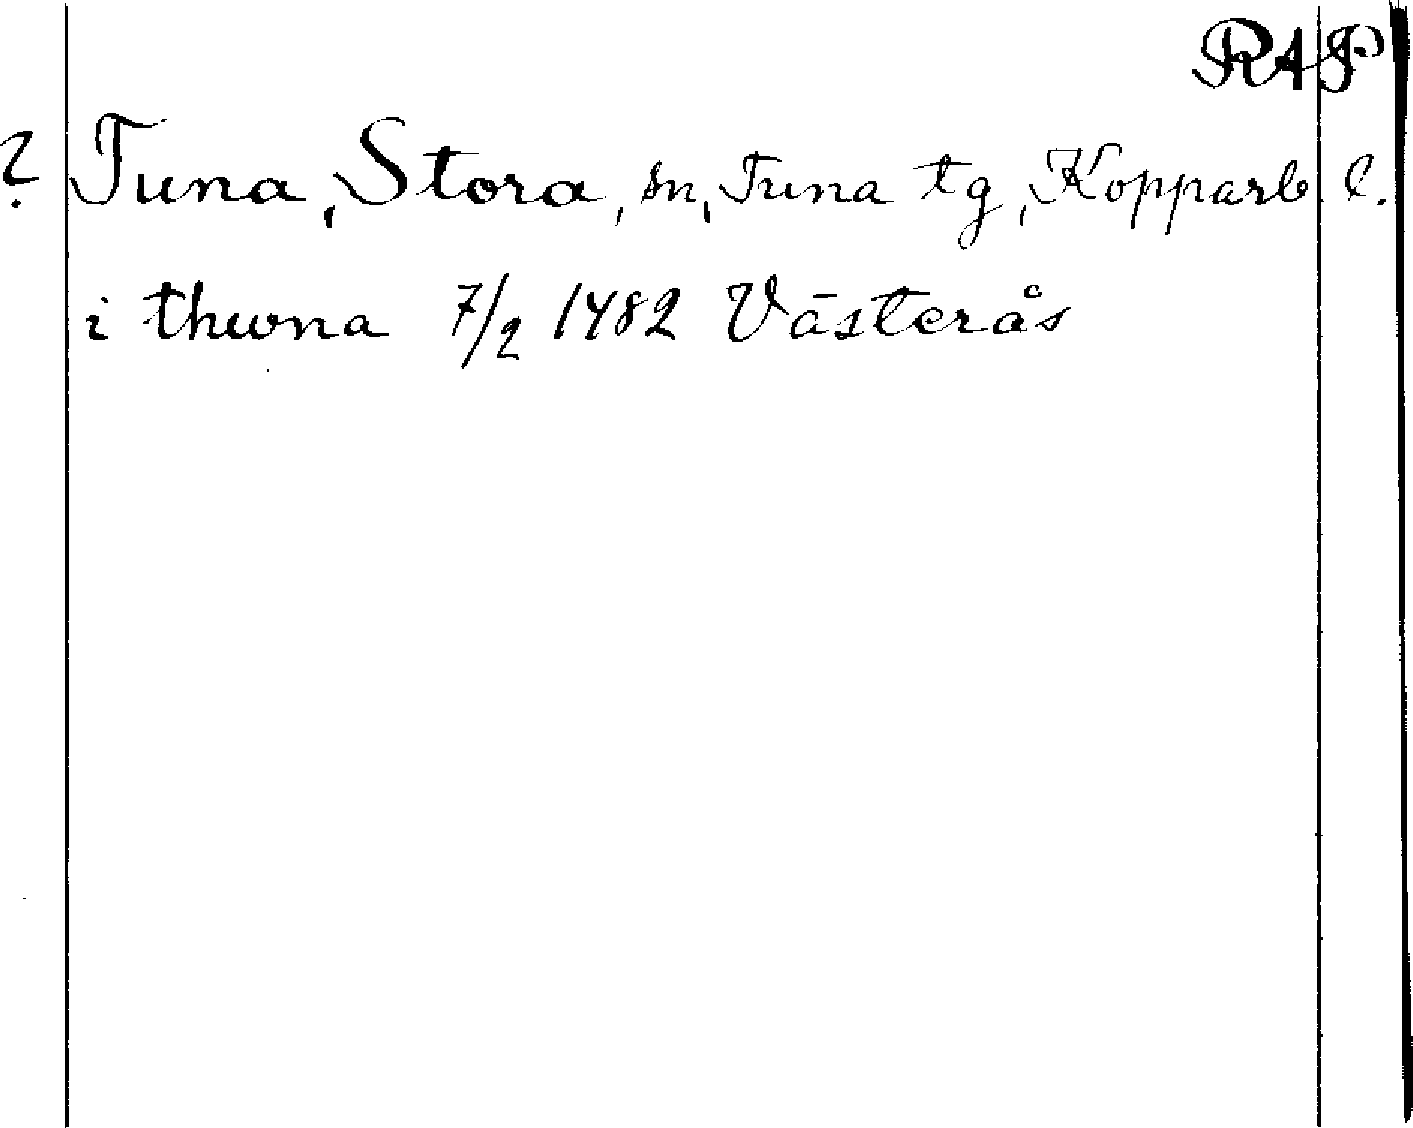 RAP
? Tuna, Stora, sn, Tuna tg, Kopparb. l.
i thwna 7/2 1482 Västerås